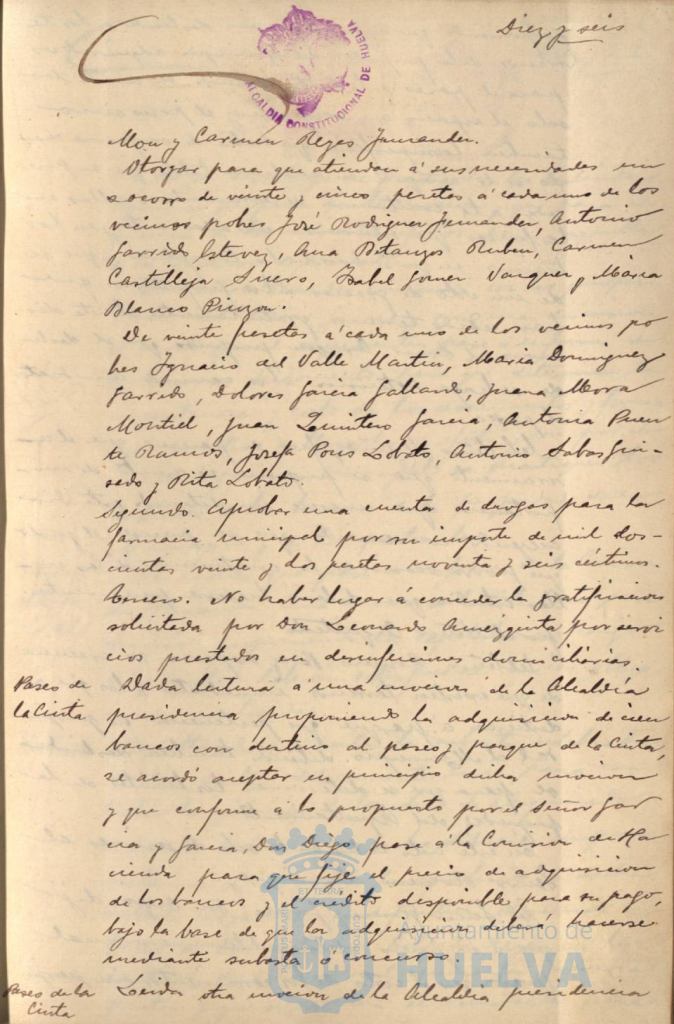 Diez y seis
ALCALDIA CONSTITUCIONAL DE HUELVA
Mon y Carmen Reyes Fernandez.
Otorgar para que atiendan á sus necesidades un
socorro de veinte y cinco pesetas á cada uno de los
vecinos pobres José Rodriguez Fernandez, Antonio
Garrido Estevez, Ana Betanzos Ruben, Carmen
Castilleja Suero, Isabel Gomez Vazquez y María
Blanco Pinzon.
De veinte pesetas á cada uno de los vecinos po-
bres Ignacio del Valle Martin, María Dominguez
Garrido, Dolores Garcia Gallardo, Juana Mora
Montiel, Juan Quintero Garcia, Antonia Puen-
te Ramos, Josefa Pons Lobato, Antonio Sabas
sado y Rita Lobato.
Segundo. Aprobar una cuenta de drogas para la
farmacia municipal por su importe de mil dos-
cientas veinte y dos pesetas noventa y seis céntimos.
Tercero. No haber lugar á conceder la gratificacion
solicitada por Don Leonardo por servi
cios prestados en desinfecciones domiciliarias.
Paseo de
la Cinta
Dada lectura á una mocion de la Alcaldía
presidencia proponiendo la adquisicion de cien
bancos con destino al paseo y parque de la Cinta,
se acordó aceptar en principio dicha mocion
y que conforme á lo propuesto por el Señor Gar
cia y Garcia, Don Diego pase á la Comision de Ha
cienda para que fije el precio de adquisicion
de los bancos y el crédito disponible para su pago,
bajo la base de que la adquisicion deberá hacerse
mediante subasta ó concurso.
Paseo de la
Cinta
Leida otra mocion de la Alcaldia presidencia
Ayuntamiento de
HUELVA